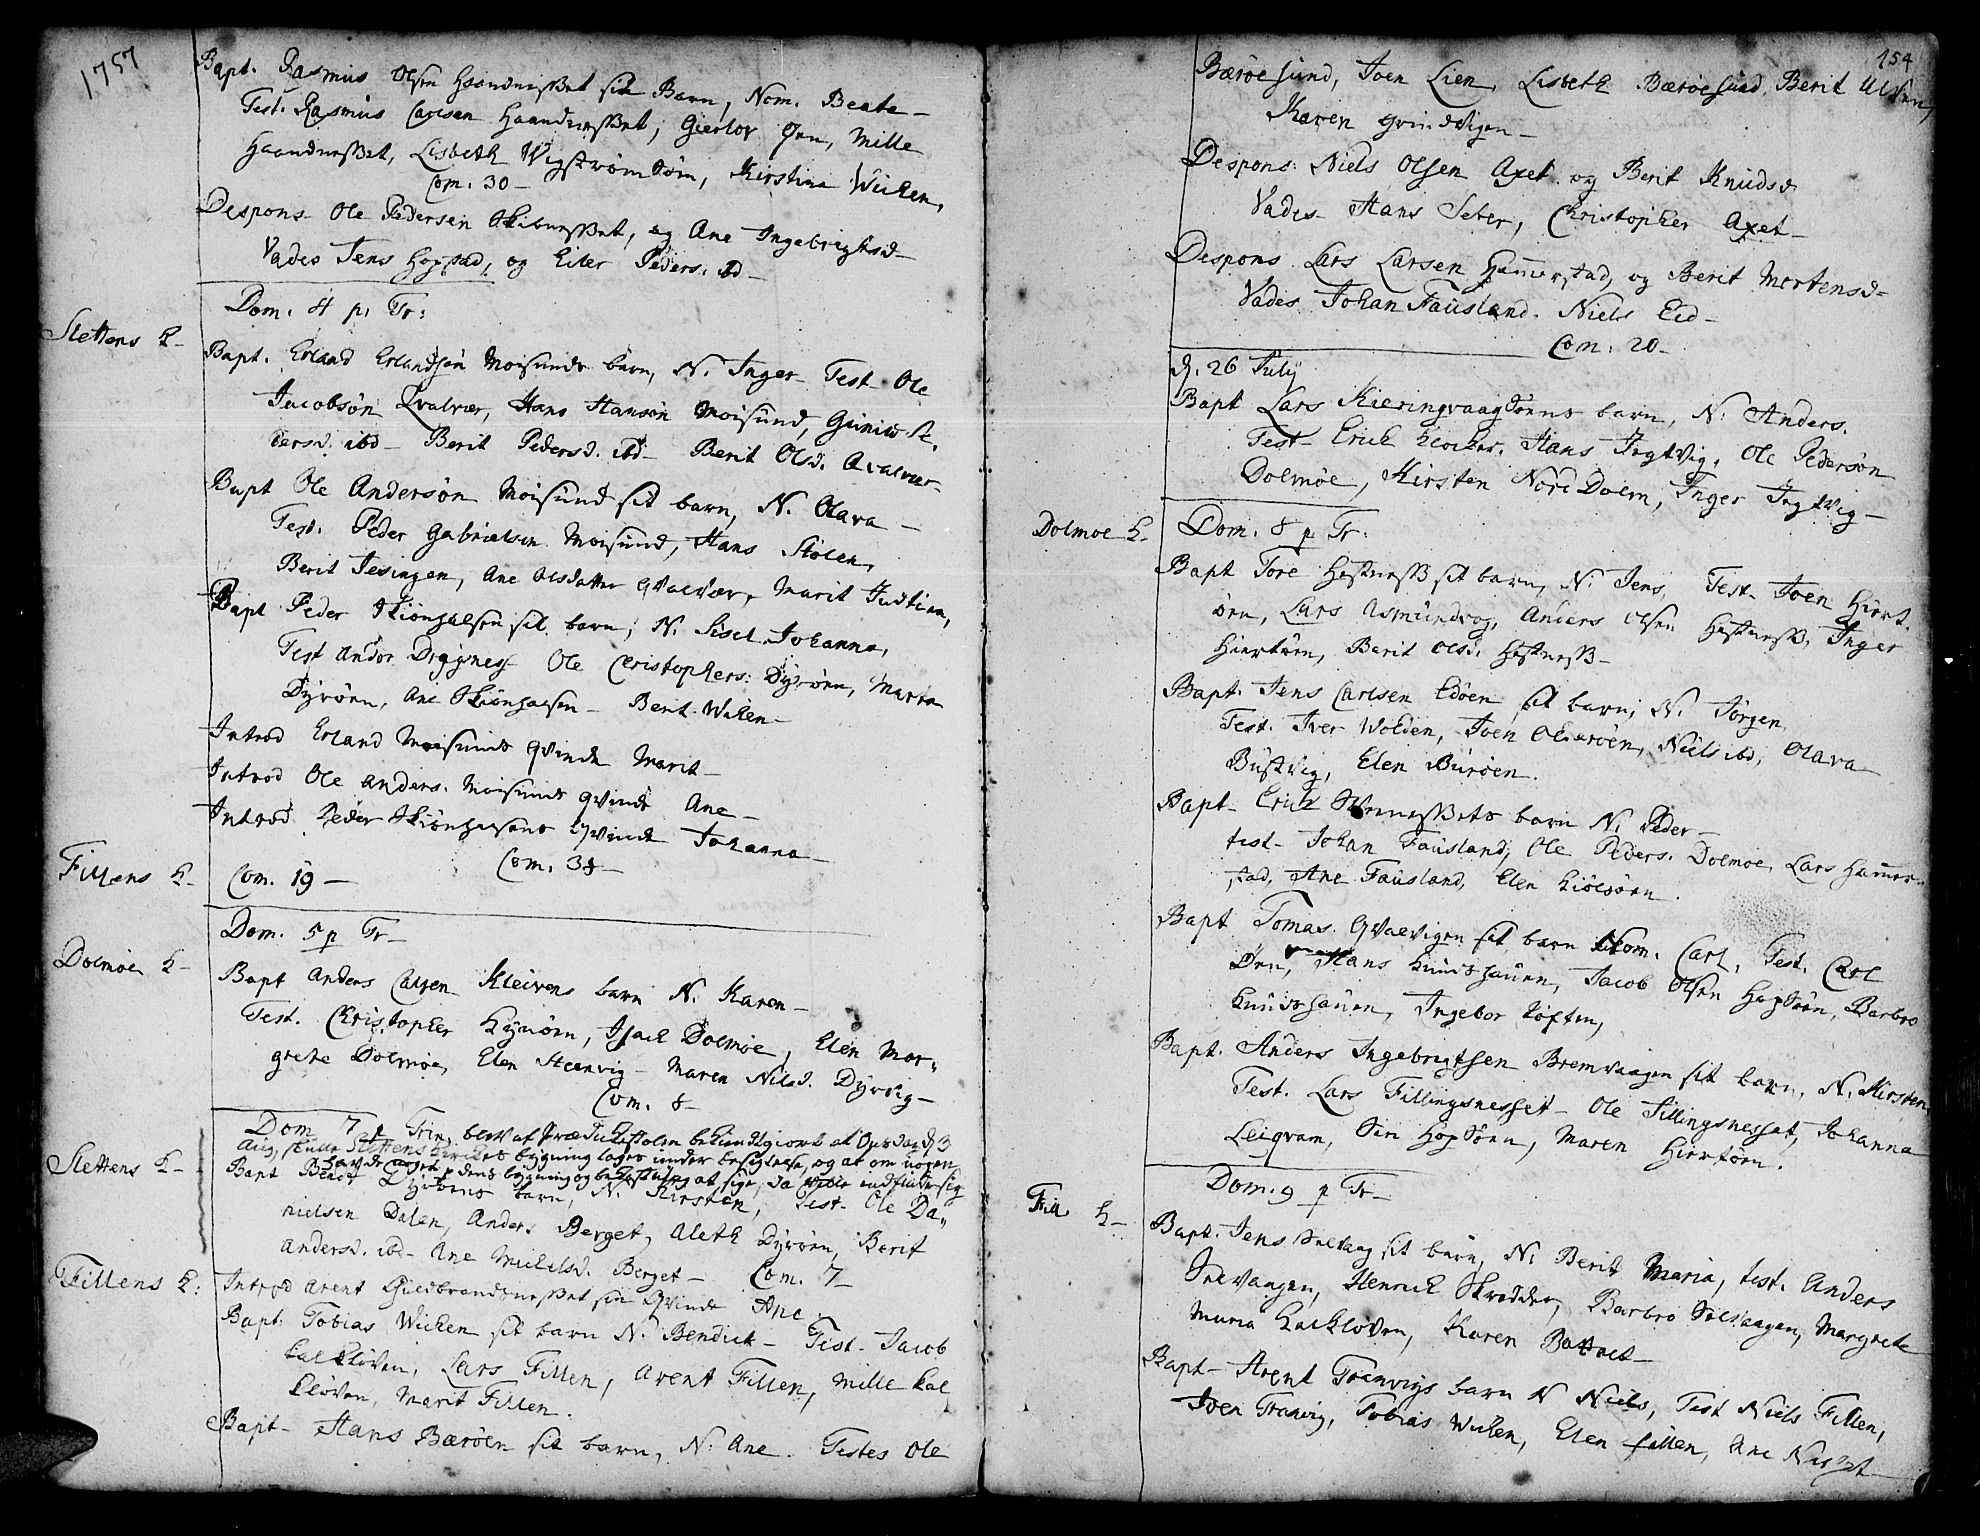 1757
Bapt. Rasmus Olsen Haandnesset sit Barn, Nom. Beata -
Test. Rasmus Carlsen Haandnesset, Gierlov Ørn, Mille
Haandnesset, Lisbeth Wigstrøm Sørn, Kirstina Wicken,
Com. 30 -
Despons. Ole Pedersen Skibnesset, og Ane Ingebrigtsd -
Vades Jens Hopstad, og Eiler Peders. ibd -
Dom. 4 p. Tr:
Slettens K -
Bapt. Erland Erlandsøn Moisunds barn, N. Inger - Test. Ole
Jacobsøn Qvalvær, Hans Hansøn Moisund, Gunild Pe-
dersd. ibd - Berit Pedersd. ibd - Berit Olsd. Qvalvær -
Bapt Ole Andersøn Moisund sit barn, N. Olava -
Test. Peder Gabrielsen Moisund, Hans Stølen,
Berit Jesingen, Ane Olsdatter Qvalvær, Marit Justien,
Bapt Peder Skiønhalsen sit barn, N. Sisel Johanna,
Test Andor Dragsnes Ole Christophers: Dyrøen, Marta
Dyrøen, Ane Skiønhalsen - Berit Wicken -
Introd Erland Moisunds Qvinde Marit -
Introd Ole Anders. Moisunds Qvinde Ane -
Introd Peder Skiønhalsens Qvinde Johanna -
Com. 38 -
Fillens K -
Com. 19 -
Dom. 5 p Tr -
Dolmøe K -
Bapt Anders Carlsen Kleivens barn N. Karen -
Test. Christopher Kyrøen, Isach Dolmøe, Elen Mar-
grete Dolmøe, Elen Steenvig - Maren Nilsd. Dyrvig -
Com. 8 -
Dom 7 p Trin, blev af Prædikestolen bekiendtgiort at Onsdag d 3
Aug. skulle Slettens Kirkes bygning tages under besigtelse, og at om nogen
havde noget p dens bygning og bekostning at sige, da ville indfinde sig
Slettens K -
Bapt Bendt Dyrøens barn, N. Kirsten, Test - Ole Da-
nielsen Dalen, Anders Berget, Aleth Dyrøen, Berit
Andersd. ibd - Ane Michelsd. Berget - Com. 7 -
Fillens K:
Introd Arent Guldbrandsnesset sin Qvinde Ane -
Bapt. Tobias Wicken sit barn N. Bendict - Test. Jacob
Kalkløven, Lars Fillen, Arent Fillen, Mille Kal
kløven, Marit Fillen.
Bapt - Hans Bærøen sit barn, N. Ane. Testes Ole
154
Bærøesund, Joen Lien, Lisbeth Bærøesund, Berit Ulven,
Karen Grindvigen -
Despons: Niels Olsen Axet og Berit Knudsd.
Vades - Hans Seter, Christopher Axet -
Despons. Lars Larsen Hammerstad, og Berit Mortensd -
Vades. Johan Fausland. Niels Eid -
Com. 20 -
d. 26 July
Bapt Lars Kieringvaag Sørns barn, N. Anders.
Test - Erich Klocker, Hans Jegtvig, Ole Pedersøn
Dolmøe, Kirsten Nord Dolm, Inger Jegtvig -
Dolmoe K -
Dom. 8 p Tr.
Bapt Tore Hestness sit barn, N. Jens, Test - Joen Hiort
øen, Lars Asmundvog, Anders Olsen Hestness, Inger
Hiortøen, Berit Olsd. Hestness -
Bapt. Jens Carlsen Edøen sit barn, N. Jørgen
Test. Iver Wolden, Joen Oldærøen, Niels ibd, Olava
Bustvig, Elen Burøen.
Bapt - Erich nessets barn N. Peder -
test - Johan Fausland, Ole Peders. Dolmoe, Lars Hammer-
stad, Ane Fausland, Elen Kiølsøen.
Bapt Tomas Qvalvigen sit barn Nom. Carl, Test. Carl
Ørn, Hans Knudshauen, Jacob Olsen Hopsørn, Barbro
Knudshauen, Ingebor Loften,
Bapt. Anders Ingebrigtsen Bremvaagen sit barn, N. Kirsten
Test. Lars Fillingsnesset - Ole Fillingsnesset, Johanna
Leiqvam, Siri Hopsørn, Maren Hiortøen.
Dom. 9 p Tr -
Fill. K -
Bapt. Jens Snevaag sit barn, N. Berit Maria, test. Anders
Snevaagen, Henrich Skredder, Barbro Snevaagen, Margrete
Maria Kalkløven, Karen Battet -
Bapt - Arent Tranvigs barn N Niels, Test Niels Fillen,
Joen Tranvig, Tobias Wicken, Elen Fillen, Ane